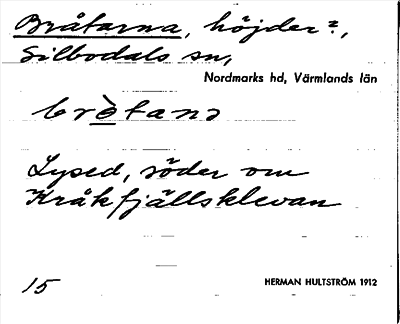 Bråtarna, höjder?,
Silbodals sn,
Nordmarks hd, Värmlands län
Lysed, söder om
Kråkfjällsklevan
15
HERMAN HULTSTRÖM 1912